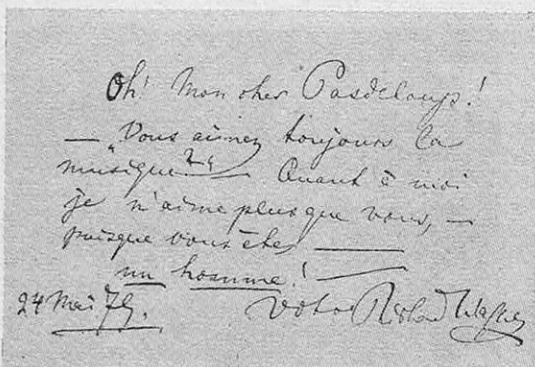 Oh! Mon cher Pasdeloup!
— „Vous aimez toujours la
musique?" — Quant à moi
je n'aime plus que vous, —
puisque vous êtes —
un homme! —
24 Mai 79.
votre Richard Wagner